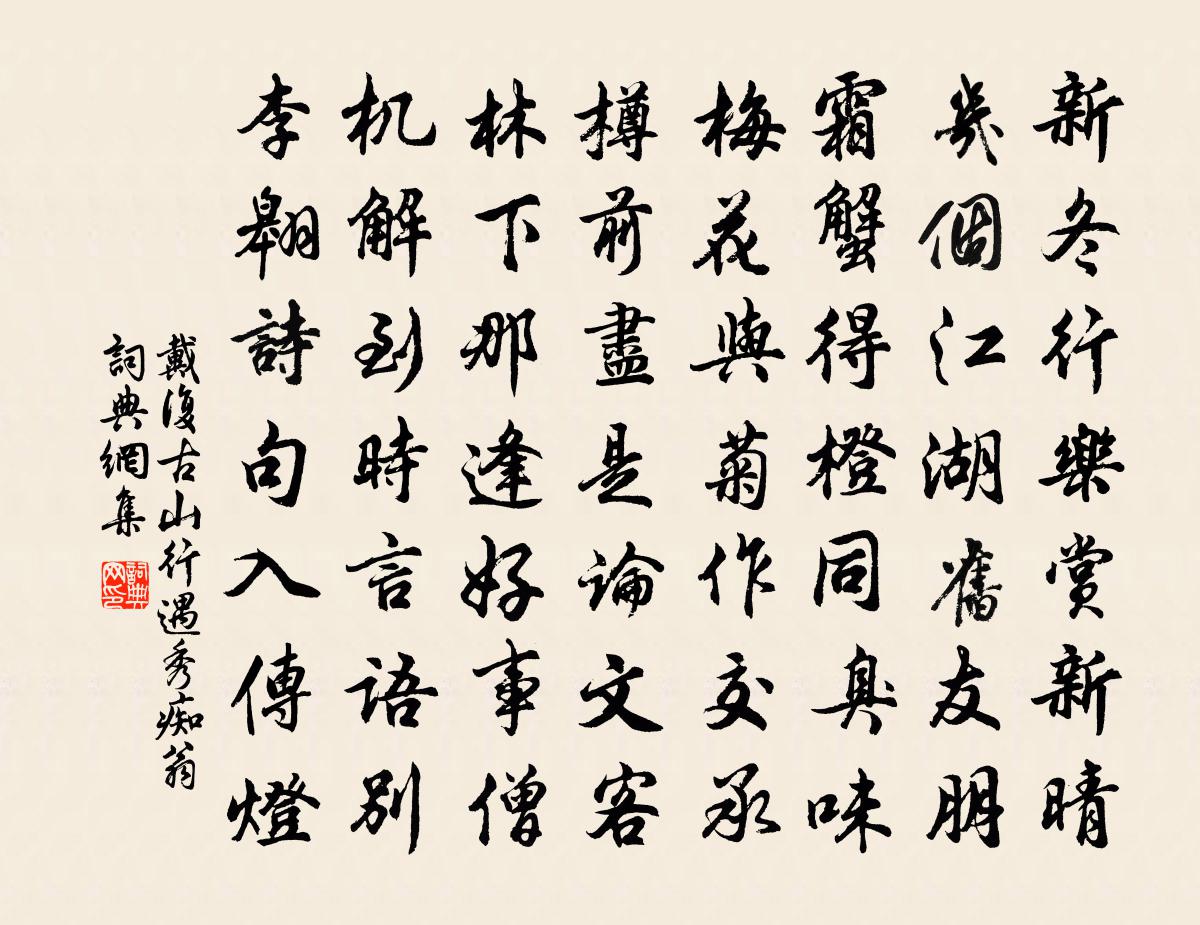 新冬行樂賞新晴
幾個江湖舊友朋
霜蟹得橙同臭味
梅花與菊作交承
樽前盡是論文客
林下那逢好事僧
机解到時言語別
李翱詩句入傳燈
戴復古山行遇秀痴翁
詞典網集
詞典网印